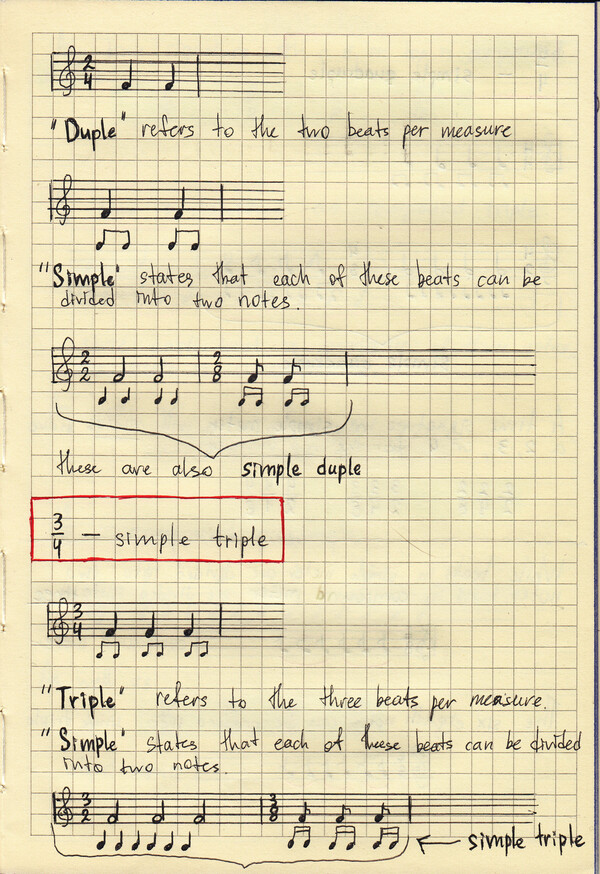 2 4
"Duple" refers to the two beats per measure
"Simple" states that each of these beats can be
divided into two notes.
2 2 2 8
these are also simple duple
3/4 — simple triple
3 4
"Triple" refers to the three beats per measure.
"Simple" states that each of these beats can be divided
into two notes.
3 2 3 8
simple triple